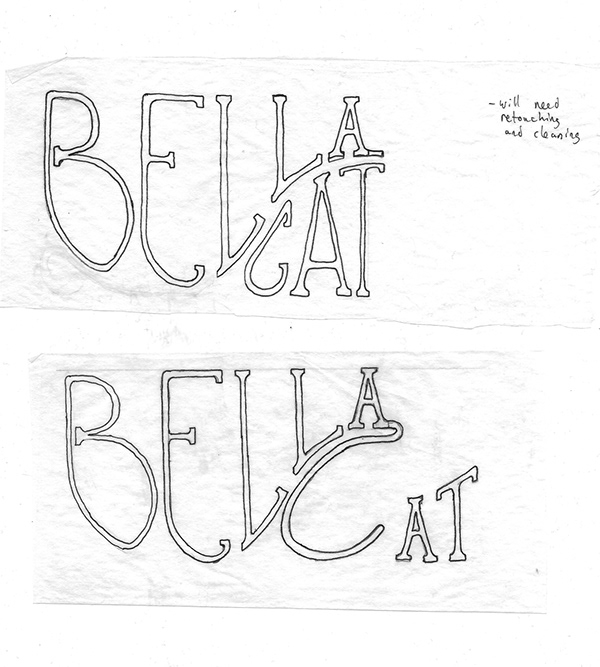 BELLA
CAT
- will need
retouching
and cleaning
BELLA
CAT